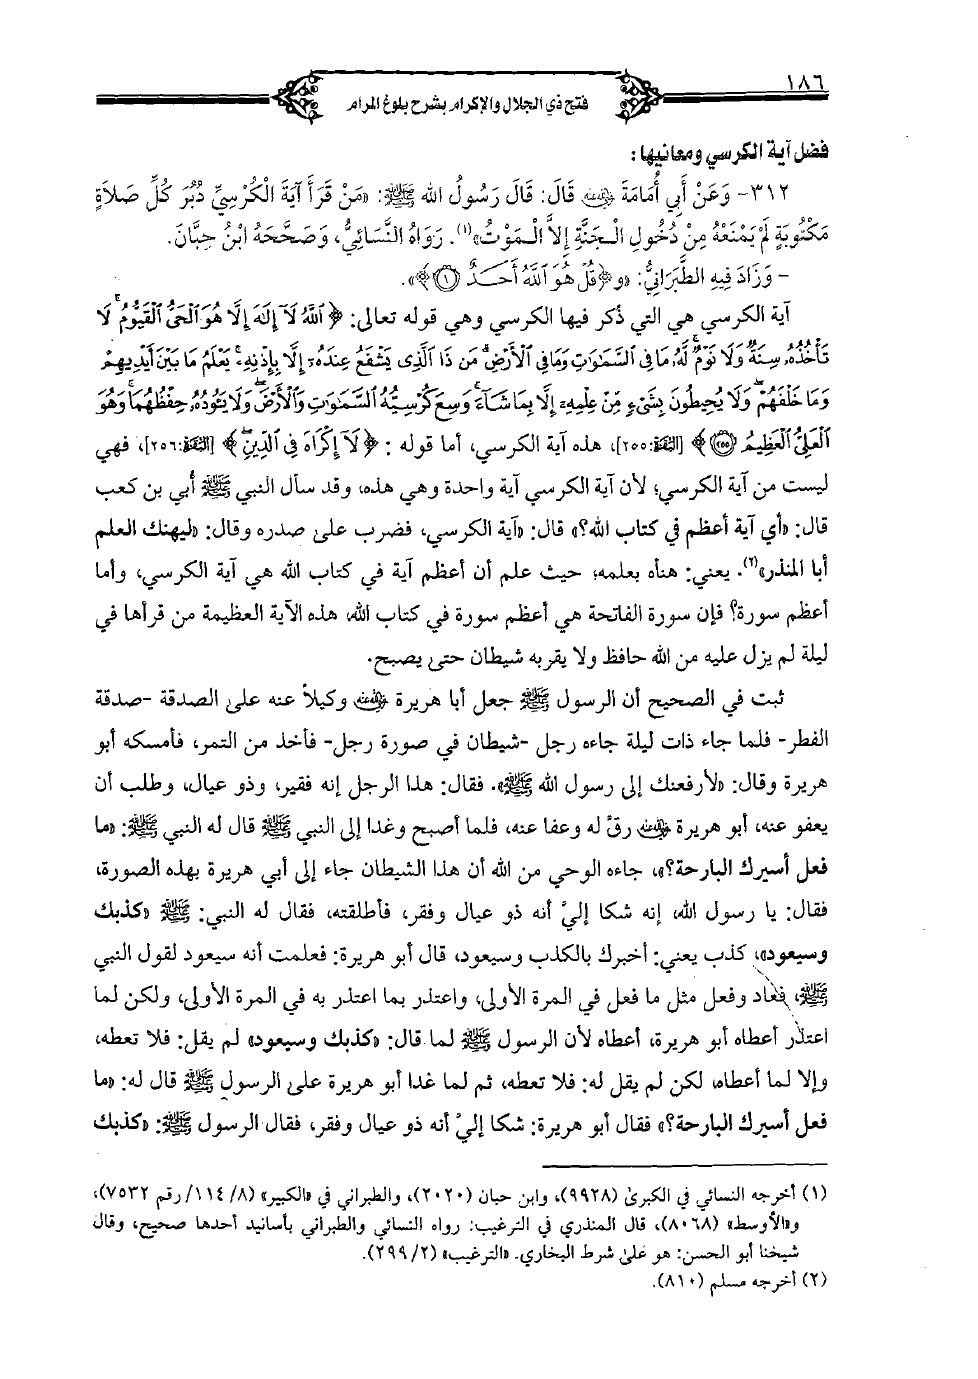 ١٨٦
فتح ذي الجلال والإكرام بشرح بلوغ المرام
فضل آية الكرسي ومعانيها:
٣١٢- وَعَنْ أَبِي أُمَامَةَ رضي الله عنه قَالَ: قَالَ رَسُولُ الله ﷺ: «مَنْ قَرَأَ آيَةَ الْكُرْسِيِّ دُبُرَ كُلِّ صَلاَةٍ
مَكْتُوبَةٍ لَمْ يَمْنَعْهُ مِنْ دُخُولِ الْجَنَّةِ إِلاَّ الْمَوْتُ»(١). رَوَاهُ النَّسَائِيُّ، وَصَحَّحَهُ ابْنُ حِبَّانَ.
- وَزَادَ فِيهِ الطَّبَرَانِيُّ: «و﴿قُلْ هُوَ اللَّهُ أَحَدٌ ١﴾».
آية الكرسي هي التي ذكر فيها الكرسي وهي قوله تعالى: ﴿اللَّهُ لَآ إِلَٰهَ إِلَّا هُوَ الْحَيُّ الْقَيُّومُ ۚ لَا
تَأْخُذُهُۥ سِنَةٌ وَلَا نَوْمٌ ۚ لَّهُۥ مَا فِي السَّمَٰوَٰتِ وَمَا فِي الْأَرْضِ ۗ مَن ذَا الَّذِي يَشْفَعُ عِندَهُۥٓ إِلَّا بِإِذْنِهِۦ ۚ يَعْلَمُ مَا بَيْنَ أَيْدِيهِمْ
وَمَا خَلْفَهُمْ ۖ وَلَا يُحِيطُونَ بِشَيْءٍ مِّنْ عِلْمِهِۦٓ إِلَّا بِمَا شَآءَ ۚ وَسِعَ كُرْسِيُّهُ السَّمَٰوَٰتِ وَالْأَرْضَ ۖ وَلَا يَئُودُهُۥ حِفْظُهُمَا ۚ وَهُوَ
الْعَلِيُّ الْعَظِيمُ ٢٥٥﴾ [البقرة: ٢٥٥]، هذه آية الكرسي، أما قوله: ﴿لَآ إِكْرَاهَ فِي الدِّينِ ۖ﴾ [البقرة: ٢٥٦]، فهي
ليست من آية الكرسي؛ لأن آية الكرسي آية واحدة وهي هذه، وقد سأل النبي ﷺ أُبي بن كعب
قال: «أي آية أعظم في كتاب الله؟» قال: «آية الكرسي، فضرب على صدره وقال: «ليهنك العلم
أبا المنذر»(٢). يعني: هنأه بعلمه؛ حيث علم أن أعظم آية في كتاب الله هي آية الكرسي، وأما
أعظم سورة؟ فإن سورة الفاتحة هي أعظم سورة في كتاب الله، هذه الآية العظيمة من قرأها في
ليلة لم يزل عليه من الله حافظ ولا يقربه شيطان حتى يصبح.
ثبت في الصحيح أن الرسول ﷺ جعل أبا هريرة رضي الله عنه وكيلاً عنه على الصدقة -صدقة
الفطر- فلما جاء ذات ليلة جاءه رجل -شيطان في صورة رجل- فأخذ من التمر، فأمسكه أبو
هريرة وقال: «لأرفعنك إلى رسول الله ﷺ». فقال: هذا الرجل إنه فقير، وذو عيال، وطلب أن
يعفو عنه، أبو هريرة رضي الله عنه رقَّ له وعفا عنه، فلما أصبح وغدا إلى النبي ﷺ قال له النبي ﷺ: «ما
فعل أسيرك البارحة؟»، جاءه الوحي من الله أن هذا الشيطان جاء إلى أبي هريرة بهذه الصورة،
فقال: يا رسول الله، إنه شكا إليَّ أنه ذو عيال وفقر، فأطلقته، فقال له النبي: ﷺ «كذبك
وسيعود»، كذب يعني: أخبرك بالكذب وسيعود، قال أبو هريرة: فعلمت أنه سيعود لقول النبي
ﷺ، فعاد وفعل مثل ما فعل في المرة الأولى، واعتذر بما اعتذر به في المرة الأولى، ولكن لما
اعتذر أعطاه أبو هريرة، أعطاه لأن الرسول ﷺ لما قال: «كذبك وسيعود» لم يقل: فلا تعطه،
وإلا لما أعطاه، لكن لم يقل له: فلا تعطه، ثم لما غدا أبو هريرة على الرسول ﷺ قال له: «ما
فعل أسيرك البارحة؟» فقال أبو هريرة: شكا إليَّ أنه ذو عيال وفقر، فقال الرسول ﷺ: «كذبك
(١) أخرجه النسائي في الكبرى (٩٩٢٨)، وابن حبان (٢٠٢٠)، والطبراني في «الكبير» (٨/ ١١٤/ رقم ٧٥٣٢)،
و«الأوسط» (٨٠٦٨)، قال المنذري في الترغيب: رواه النسائي والطبراني بأسانيد أحدها صحيح، وقال
شيخنا أبو الحسن: هو على شرط البخاري. «الترغيب» (٢/ ٢٩٩).
(٢) أخرجه مسلم (٨١٠).